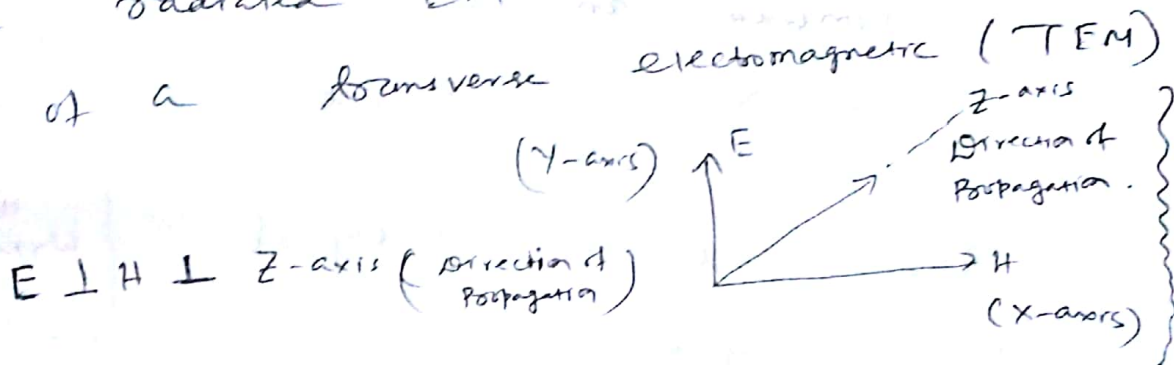 of a transverse electromagnetic (TEM)
Z-axis
(Y-axis) E
Direction of
Propagation.
E ⊥ H ⊥ Z-axis (Direction of
Propagation)
H
(X-axis)